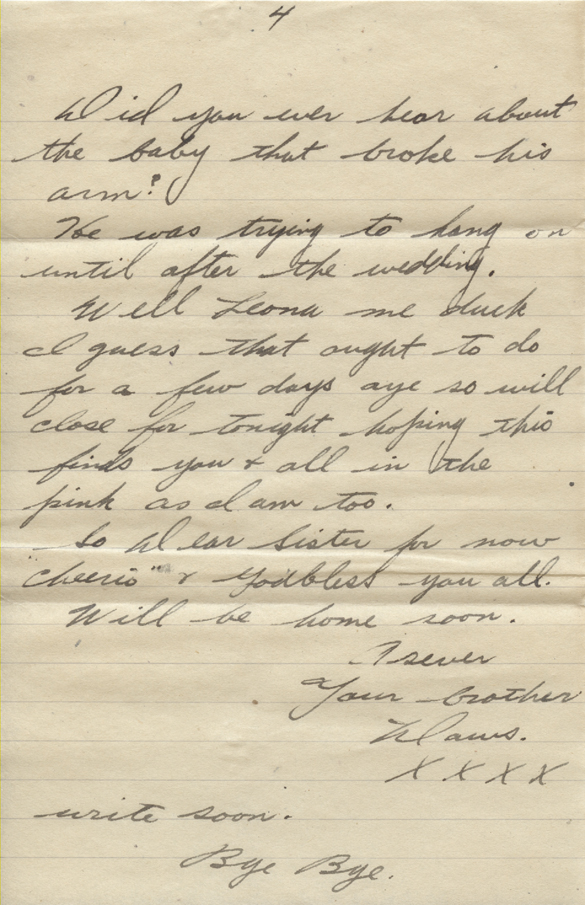 4
Did you ever hear about
the baby that broke his
arm?
He was trying to hang on
until after the wedding.
Well Leona me duck
I guess that ought to do
for a few days aye so will
close for tonight hoping this
finds you & all in the
pink as I am too.
So Dear Sister for now
cheerio" & Godbless you all.
Will be home soon.
As ever
Your brother
Daws.
X X X X
write soon.
Bye Bye.